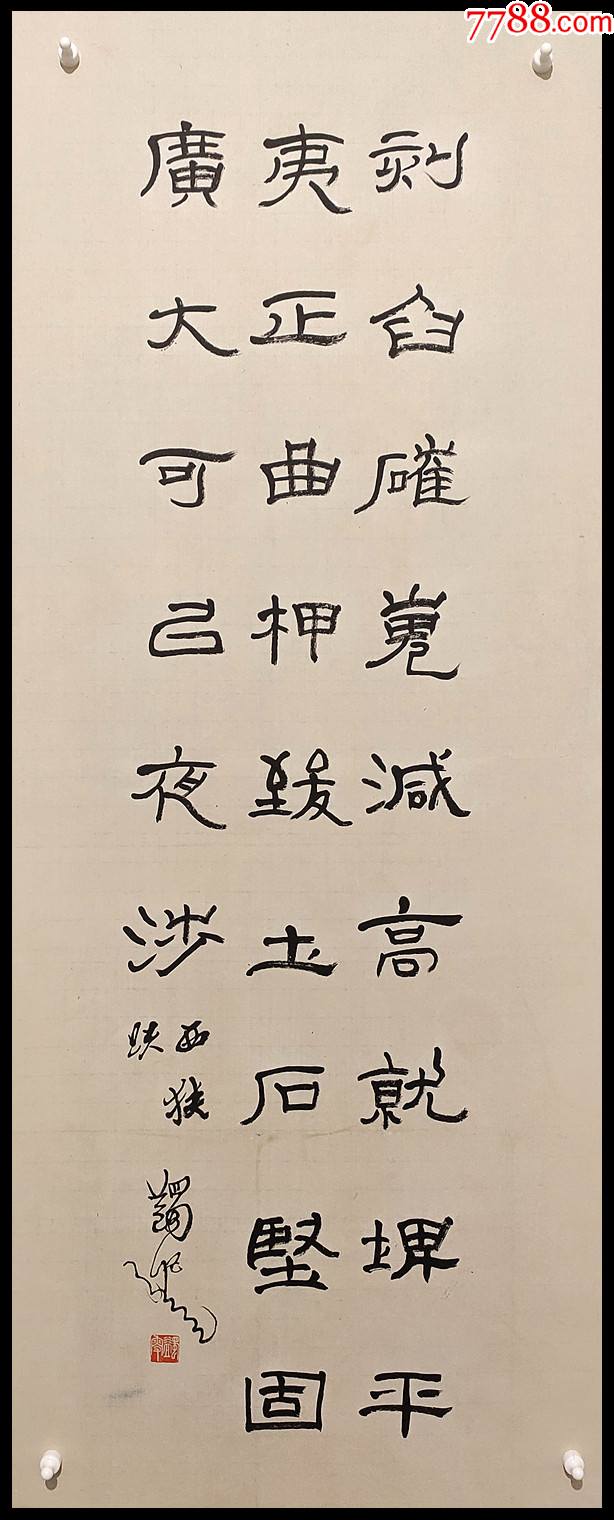 7788.com
刻臽磪嵬減高就埤平
夷正曲柙致土石堅固
廣大可㠯夜涉
西狹